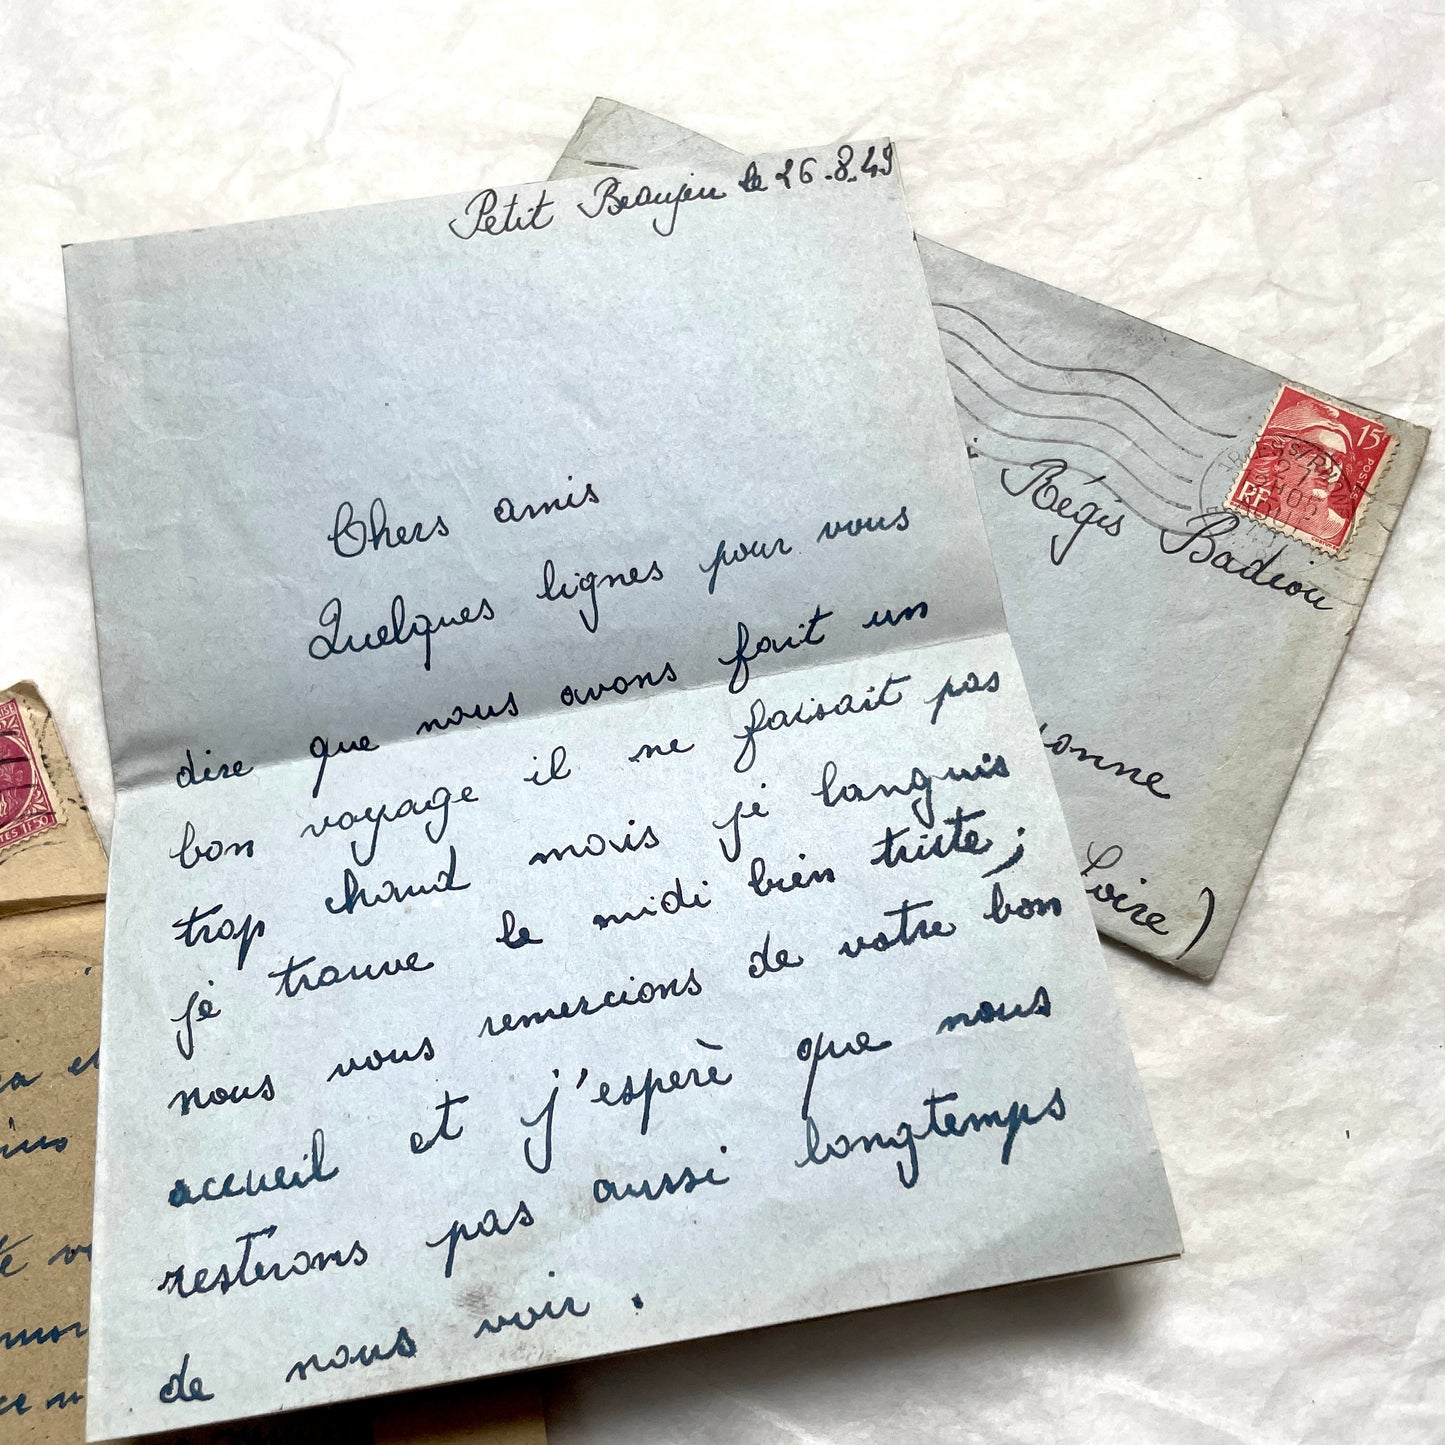 Petit Beaujeu le 26.8.49
Chers amis
Quelques lignes pour vous
dire que nous avons fait un
bon voyage il ne faisait pas
trop chaud mais je languis
je trouve le midi bien triste;
nous vous remercions de votre bon
accueil et j'esperè que nous
resterons pas aussi longtemps
de nous voir.
Régis Badiou
onne
Loire)
15F
POSTES
RF
27
TES 1F50